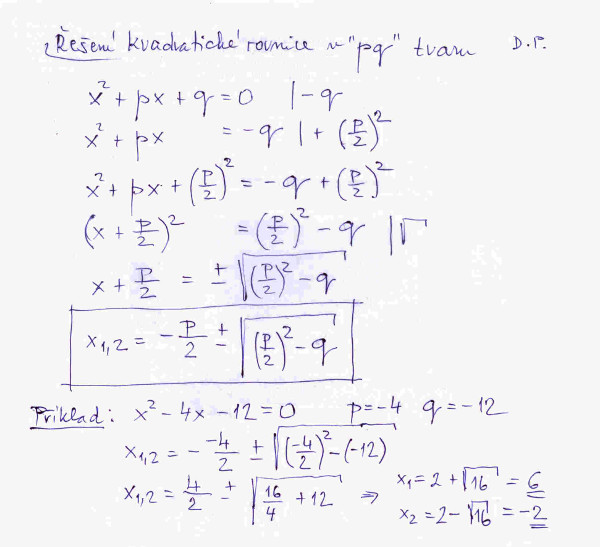 Řešení kvadratické rovnice v "pq" tvaru D.P.
x² + px + q = 0 |-q
x² + px = -q | + (p/2)²
x² + px + (p/2)² = -q + (p/2)²
(x + p/2)² = (p/2)² - q |√
x + p/2 = ± √((p/2)² - q)
x₁,₂ = -p/2 ± √((p/2)² - q)
Příklad: x² - 4x - 12 = 0 p=-4 q=-12
x₁,₂ = - -4/2 ± √((-4/2)² - (-12))
x₁,₂ = 4/2 ± √(16/4 + 12) ⇒ x₁ = 2 + √16 = 6
x₂ = 2 - √16 = -2